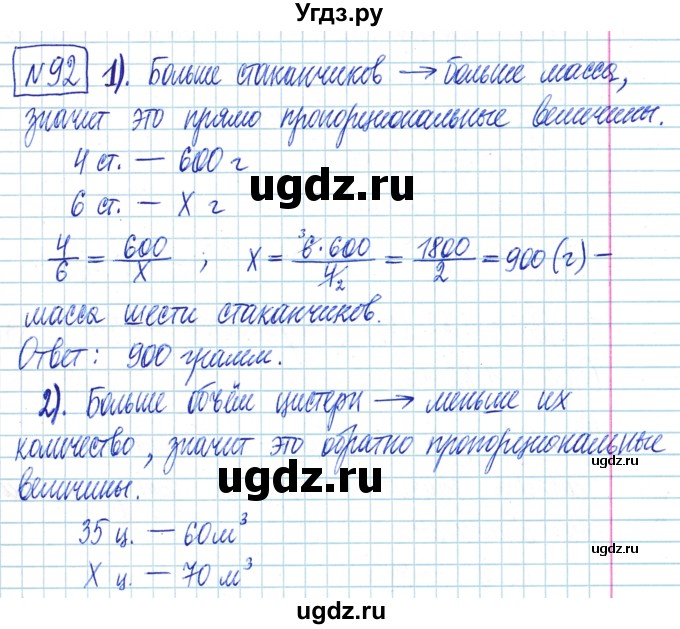 Угдз.ру
№92 1). Больше стаканчиков → больше масса,
значит это прямо пропорциональные величины.
4 ст. — 600 г
ugdz.ru
6 ст. — X г
4/6 = 600/X ; X = (6³·600)/4₂ = 1800/2 = 900 (г) —
масса шести стаканчиков.
Ответ: 900 грамм.
ugdz.ru
2). Больше объём цистерн → меньше их
количество, значит это обратно пропорциональные
ugdz.ru
величины.
ugdz.ru
35 ц. — 60м³
ugdz.ru
X ц. — 70 м³
ugdz.ru